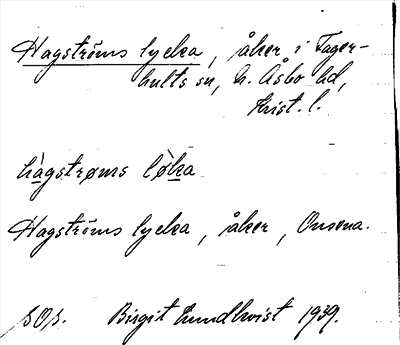 Hagströms lycka, åker i Fager-
hults sn, N. Åsbo hd,
Krist. l.
hàgstrøms lø̀ka
Hagströms lycka, åker,
sOs. Birgit Lundkvist 1939.